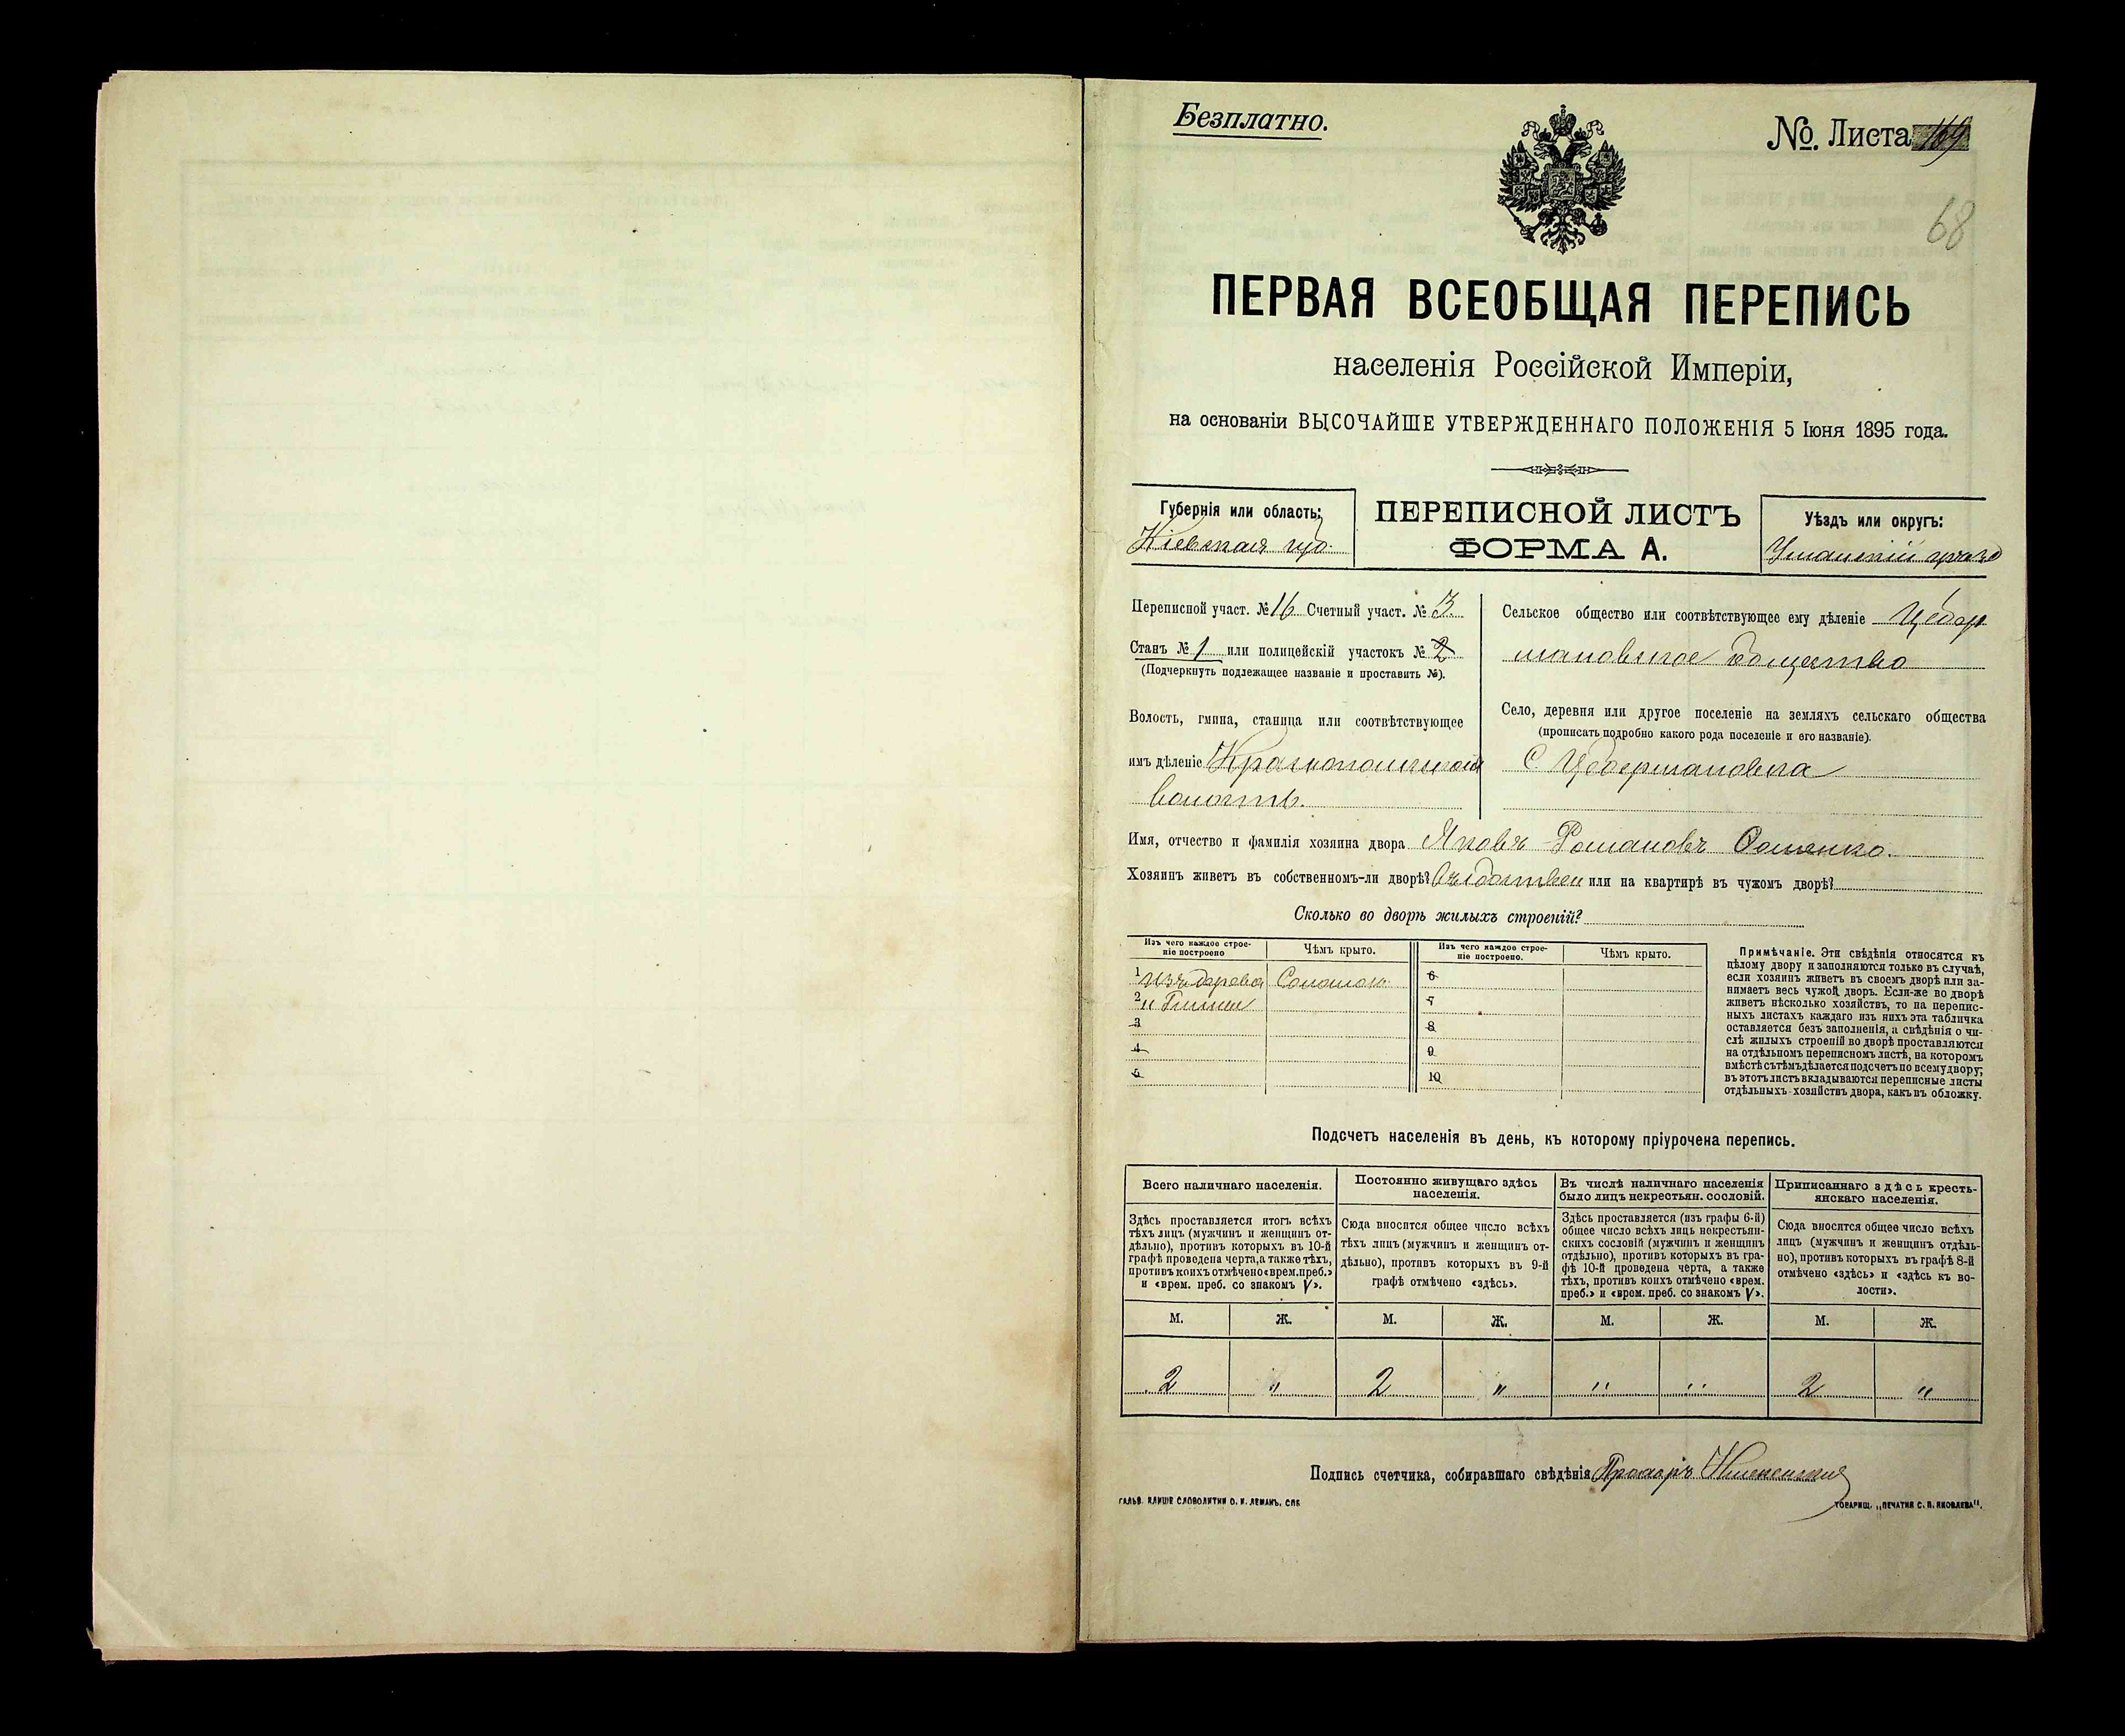 Безплатно.
№. Листа 169
68
ПЕРВАЯ ВСЕОБЩАЯ ПЕРЕПИСЬ
населенія Россійской Имперіи,
на основаніи ВЫСОЧАЙШЕ УТВЕРЖДЕННАГО ПОЛОЖЕНІЯ 5 Іюня 1895 года.
Губернія или область:
Кіевская губ.
ПЕРЕПИСНОЙ ЛИСТЪ
ФОРМА А.
Уѣздъ или округъ:
Уманскій уѣздъ
Переписной участ. № 16 Счетный участ. № 3.
Станъ № 1 или полицейскій участокъ № 2
(Подчеркнуть подлежащее названіе и проставить №).
Волость, гмина, станица или соотвѣтствующее
имъ дѣленіе Краснопольская
волость.
Сельское общество или соотвѣтствующее ему дѣленіе Цебер
мановское общество
Село, деревня или другое поселеніе на земляхъ сельскаго общества
(прописать подробно какого рода поселеніе и его названіе).
С. Цебермановка
Имя, отчество и фамилія хозяина двора Яковъ Романовъ
Хозяинъ живетъ въ собственномъ-ли дворѣ? Въ собствен или на квартирѣ въ чужомъ дворѣ?
Сколько во дворѣ жилыхъ строеній?
Изъ чего каждое строе-
ніе построено
Чѣмъ крыто.
Изъ чего каждое строе-
ніе построено.
Чѣмъ крыто.
1 Изъ дерева Соломою
2 и Глины
3
4
5
6
7
8
9
10
Примѣчаніе. Эти свѣдѣнія относятся къ
цѣлому двору и заполняются только въ случаѣ,
если хозяинъ живетъ въ своемъ дворѣ или за-
нимаетъ весь чужой дворъ. Если-же во дворѣ
живетъ нѣсколько хозяйствъ, то на перепис-
ныхъ листахъ каждаго изъ нихъ эта табличка
оставляется безъ заполненія, а свѣдѣнія о чи-
слѣ жилыхъ строеній во дворѣ проставляются
на отдѣльномъ переписномъ листѣ, на которомъ
вмѣстѣ съ тѣмъ дѣлается подсчетъ по всему двору;
въ этотъ листъ вкладываются переписные листы
отдѣльныхъ хозяйствъ двора, какъ въ обложку.
Подсчетъ населенія въ день, къ которому пріурочена перепись.
Всего наличнаго населенія.
Постоянно живущаго здѣсь
населенія.
Въ числѣ наличнаго населенія
было лицъ некрестьян. сословій.
Приписаннаго здѣсь кресть-
янскаго населенія.
Здѣсь проставляется итогъ всѣхъ
тѣхъ лицъ (мужчинъ и женщинъ от-
дѣльно), противъ которыхъ въ 10-й
графѣ проведена черта, а также тѣхъ,
противъ коихъ отмѣчено «врем. преб.»
и «врем. преб. со знакомъ V».
Сюда вносится общее число всѣхъ
тѣхъ лицъ (мужчинъ и женщинъ от-
дѣльно), противъ которыхъ въ 9-й
графѣ отмѣчено «здѣсь».
Здѣсь проставляется (изъ графы 6-й)
общее число всѣхъ лицъ некрестьян-
скихъ сословій (мужчинъ и женщинъ
отдѣльно), противъ которыхъ въ гра-
фѣ 10-й проведена черта, а также
тѣхъ, противъ коихъ отмѣчено «врем.
преб.» и «врем. преб. со знакомъ V».
Сюда вносится общее число всѣхъ
лицъ (мужчинъ и женщинъ отдѣль-
но), противъ которыхъ въ графѣ 8-й
отмѣчено «здѣсь» и «здѣсь къ во-
лости».
М. Ж. М. Ж. М. Ж. М. Ж.
2 " 2 " " " 2 "
Подпись счетчика, собиравшаго свѣдѣнія
ГАЛЬВ. КЛИШЕ СЛОВОЛИТНИ О. И. ЛЕМАНЪ, СПБ
ТОВАРИЩ. „ПЕЧАТНЯ С. П. ЯКОВЛЕВА".